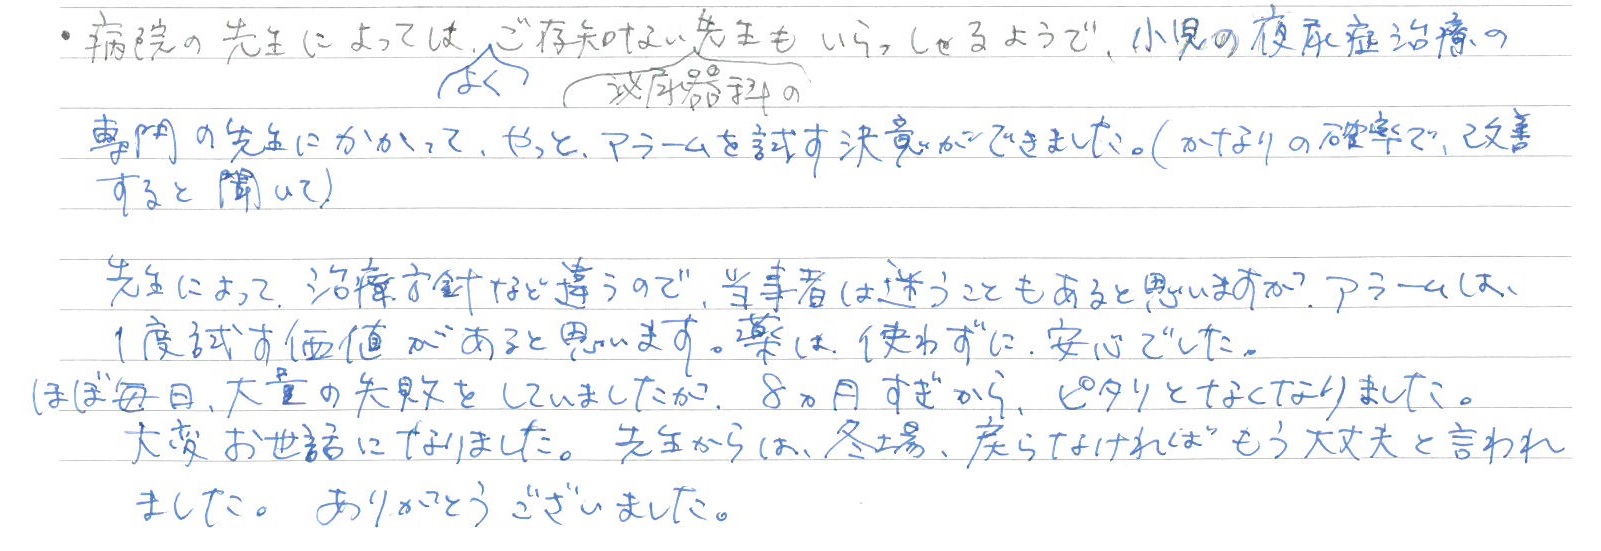 ・病院の先生によっては、ご存知ない先生もいらっしゃるようで、小児の夜尿症治療の
よく 泌尿器科の
専門の先生にかかって、やっと、アラームを試す決意ができました。(かなりの確率で、改善
すると聞いて)
先生によって、治療方針など違うので、当事者は迷うこともあると思いますが、アラームは、
1度試す価値があると思います。薬は、使わずに、安心でした。
ほぼ毎日、大量の失敗をしていましたが、8ヵ月すぎから、ピタリとなくなりました。
大変お世話になりました。先生からは、冬場、戻らなければもう大丈夫と言われ
ました。ありがとうございました。